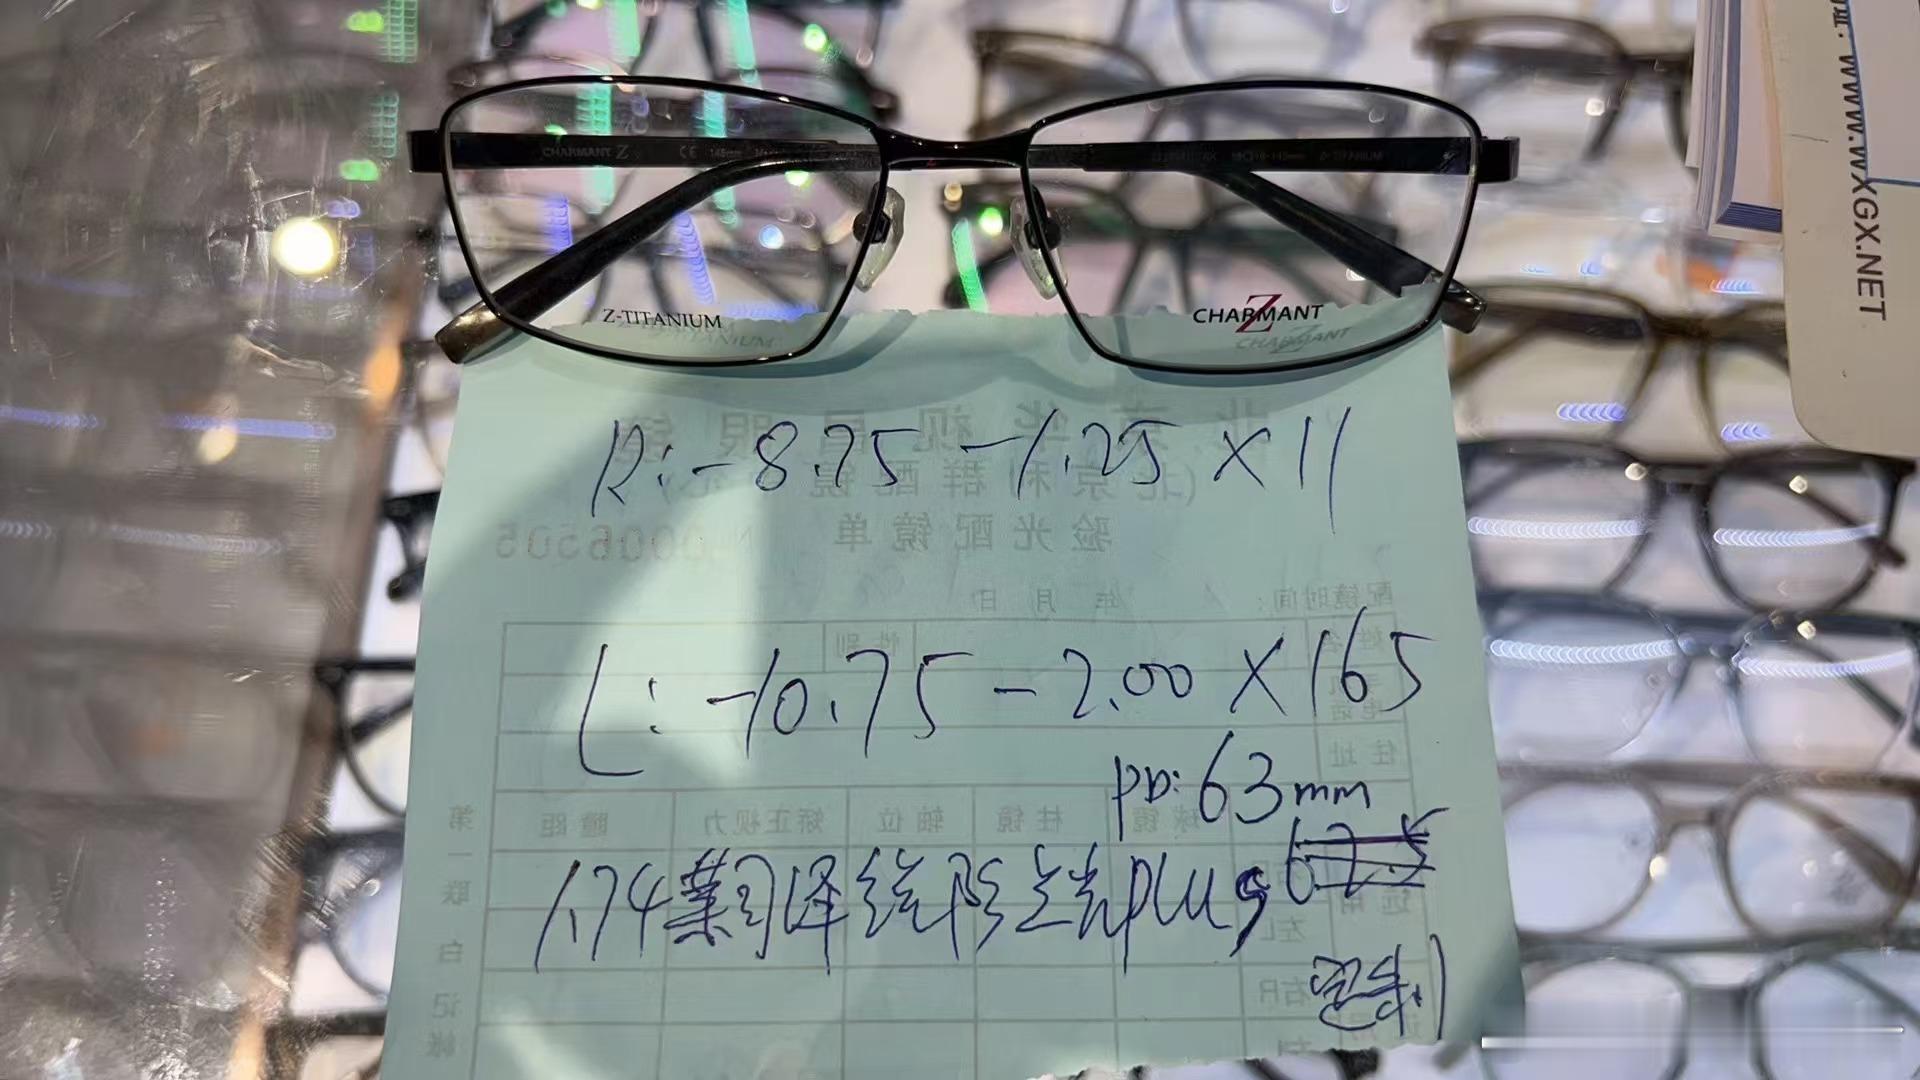 CHARMANT Z CE 145mm
Z-TITANIUM
CHARMANT Z
WWW.WXGX.NET
R: -8.75 -1.25 X 11
北京华视晶眼镜
(北京利群配镜
验光配镜单
0006505
配镜时间: 年 月 日
L: -10.75 -2.00 X 165
姓名 性别
电话
住址
PD: 63mm
球镜 柱镜 轴位 矫正视力 瞳距
1.74 点 plus 67.5
定制
远用
左L
右R
第一联 白 记帐